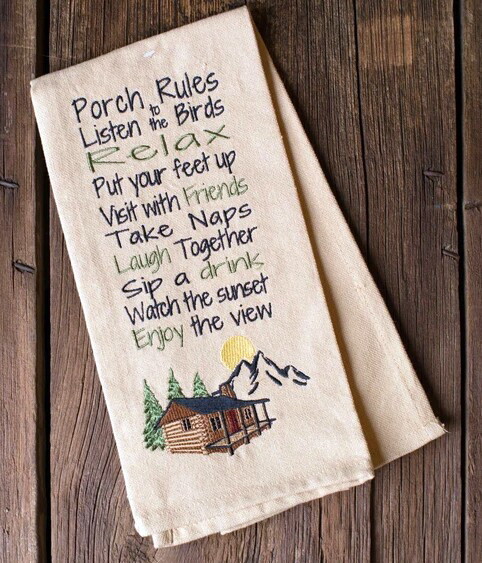 Porch Rules
Listen to the Birds
Relax
Put your feet up
Visit with Friends
Take Naps
Laugh Together
Sip a drink
Watch the sunset
Enjoy the view